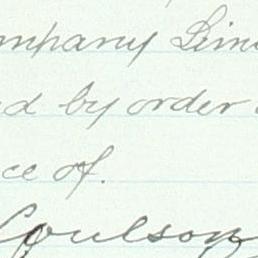 mpany Lim
d by order
ce of.
Coulson